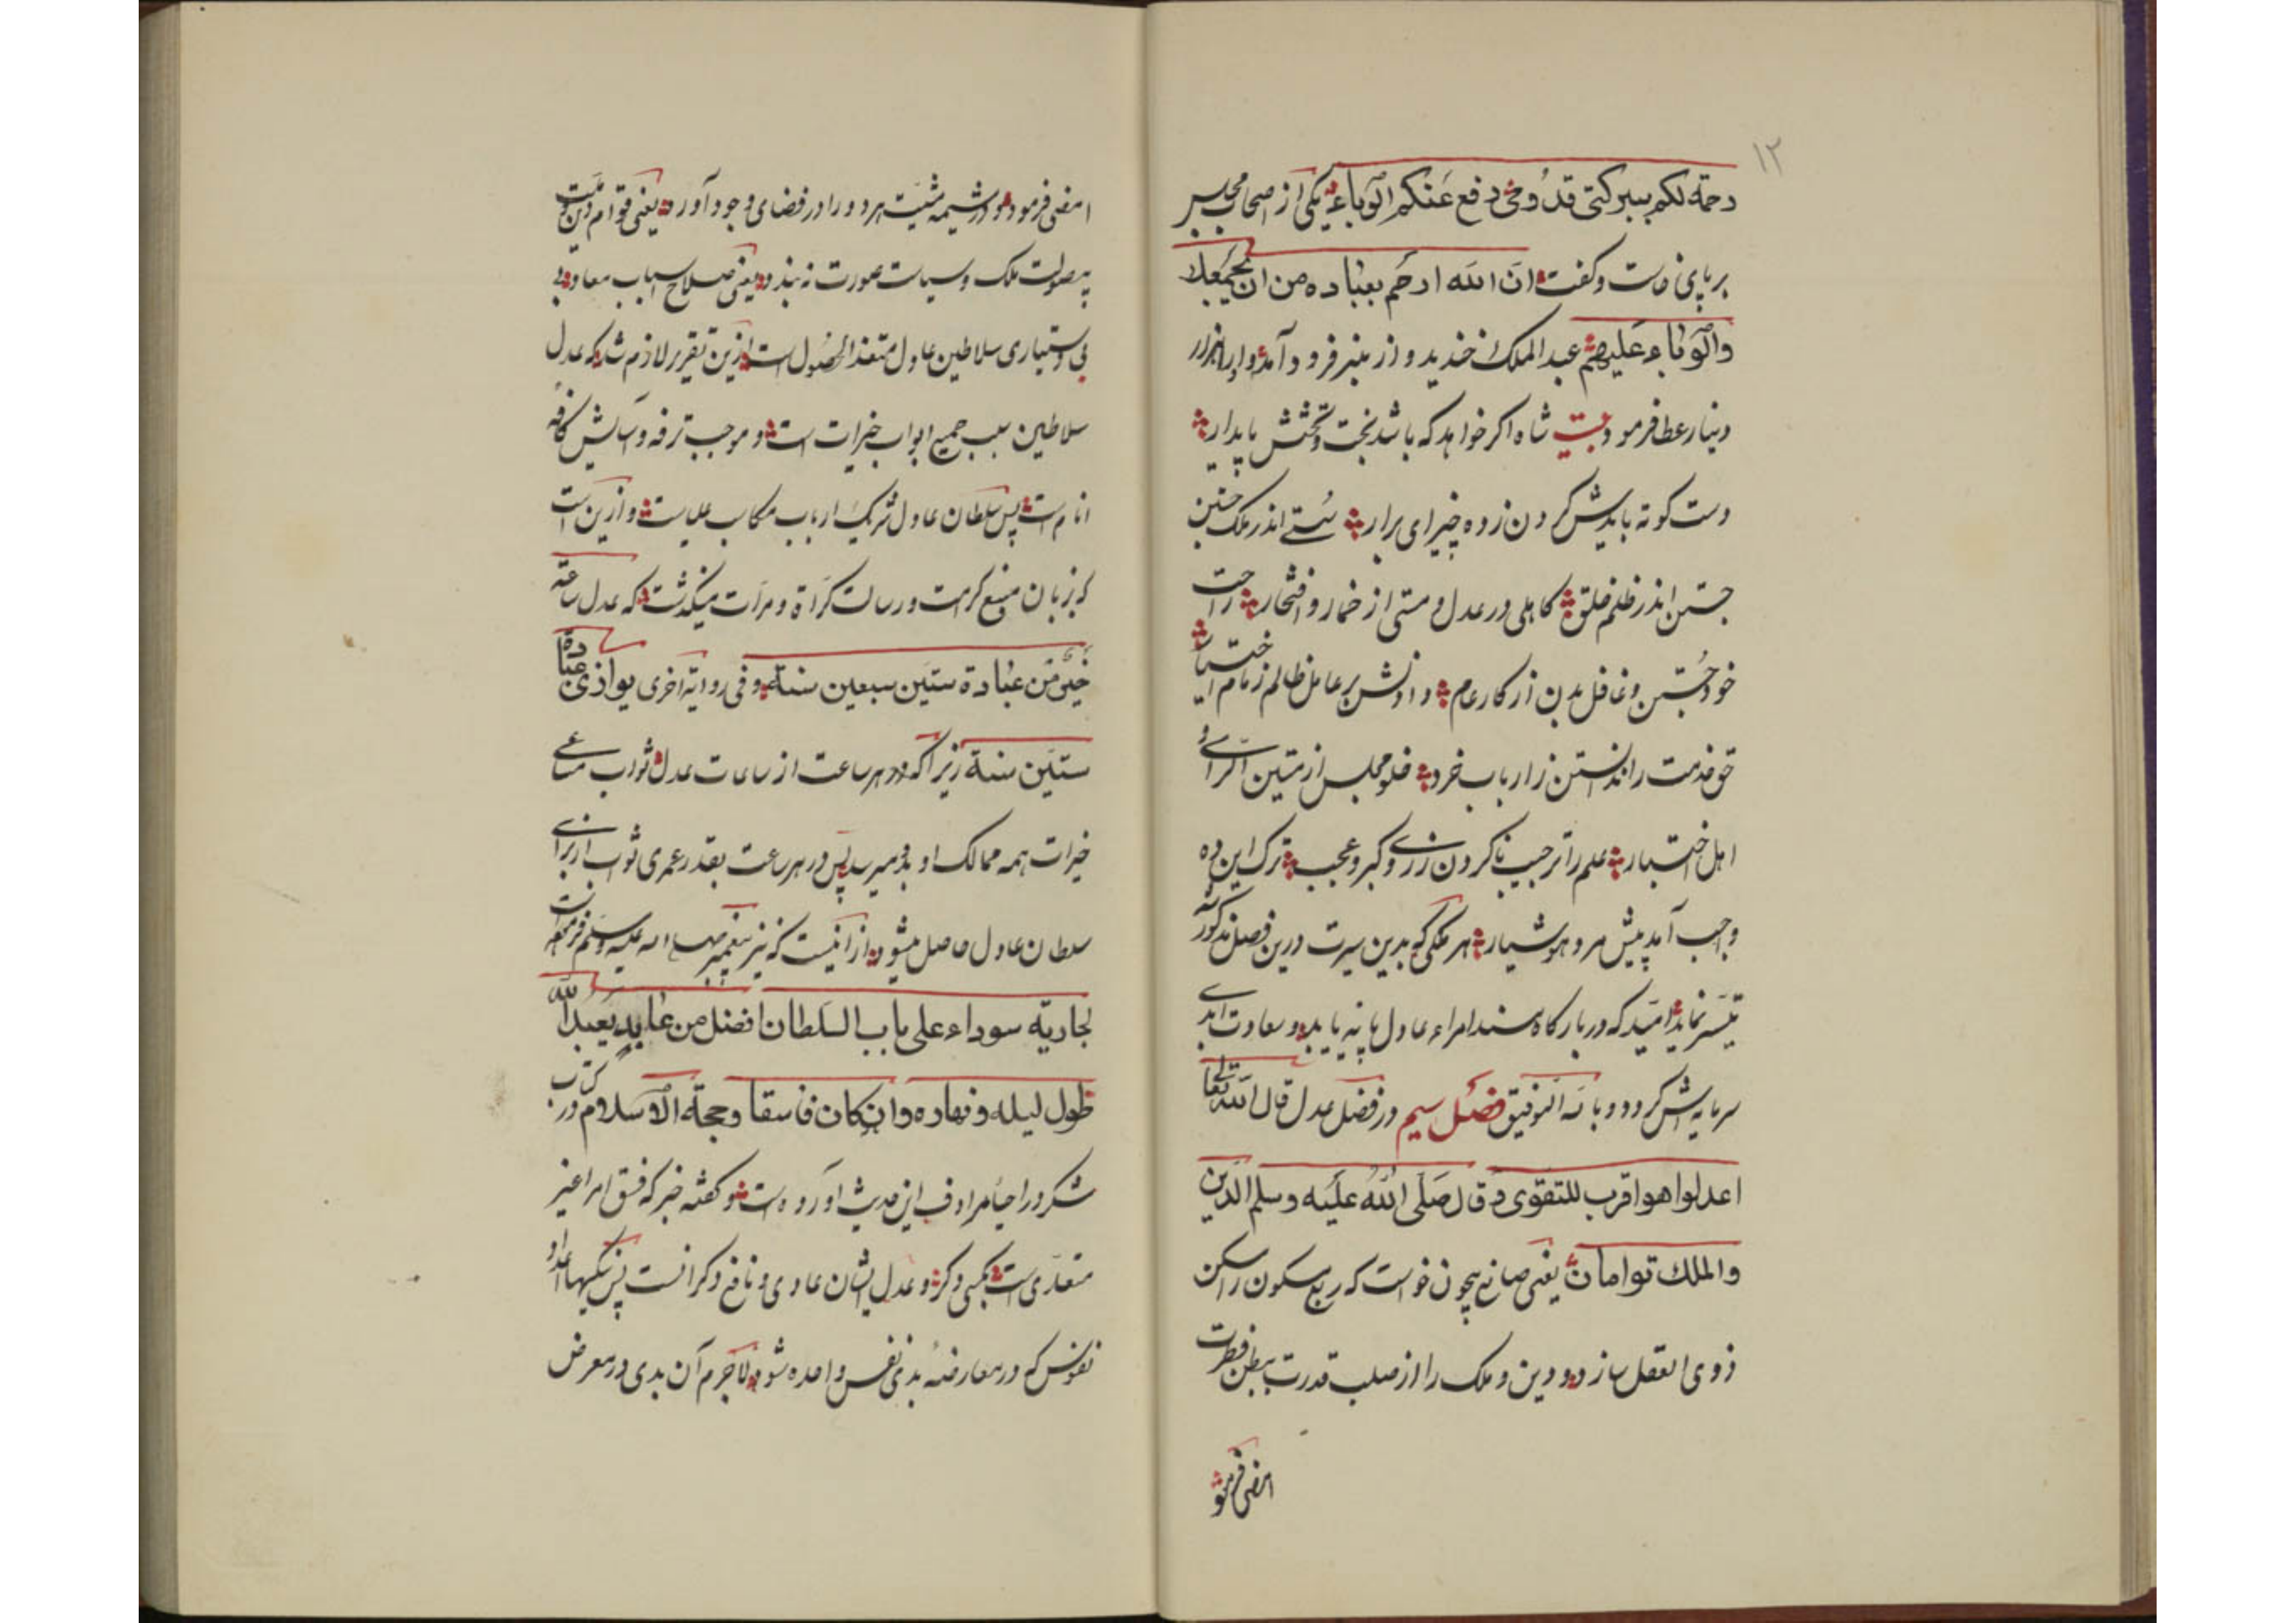 ۱۲
رحمة لکم ببرکتی قد وقی دفع عنکم الوباء یکی از اصحاب مجلس
بر پای خاست و گفت ان الله ارحم بعباده من ان یجمعک
والوباء علیهم عبد الملک بخندید و از منبر فرود آمد و او را هزار
دینار عطا فرمود بیت شاه اگر خواهد که باشد بخت و تختش پایدار
دست کوته بایدش کردن زده چیز ای برار سستی اندر ملک جستن
جستن اندر ظلم خلق کاهلی در عدل و مستی از خمار و افتخار راحت
خود جستن و غافل بدن از کار عام و دادنش بر عامل ظالم زمام اختیار
حق خدمت را ندانستن ز ارباب خرد خلو مجلس از متین الرای و
اهل اختبار علم را ترحیب ناکردن ز زی و کبر و عجب ترک این ده
واجب آمد پیش مرد هوشیار هر ملکی که بدین سیرت درین فصل مذکور شد
میسر نماید امید که در بارگاه مسند امراء عادل پایه یابد و سعادت ابدی
سرمایه‌ش گردد و بالله التوفیق فصل سیم در فضل عدل قال الله تعالی
اعدلوا هو اقرب للتقوی و قال صلی الله علیه وسلم الدین
والملک توامان یعنی صانع بیچون خواست که ربع مسکون را مسکن
ذوی العقل سازد و دین و ملک را از صلب قدرت ببطن فطرت
امضی فرمود
امضی فرمود و در مشیمه مشیت هر دو را در فضای وجود آورد یعنی قوام دین
بیصولت ملک و سیاست صورت نه‌بندد یعنی صلاح اسباب معاد بی
بی دستیاری سلاطین عادل متعذر الحصول است ازین تقریر لازم شد که عدل
سلاطین سبب جمیع ابواب خیرات است و موجب ترفه و آسایش کافه
انام است پس سلطان عادل شریک ارباب مکاسب علیاست و ازین است
که بزبان منبع کرامت و رسالت کرة و مرات میگذشت که عدل ساعة
خیر من عبادة ستین سبعین سنة و فی روایة اخری یوازی عبادة
ستین سنة زیرا که در هر ساعت از ساعات عدل ثواب مساعی
خیرات همه ممالک او بدو میرسد پس در هر ساعت بقدر عمری ثواب از برای
سلطان عادل حاصل میشود از آنیست که نیز پیغمبر صلی الله علیه وسلم فرموده است
لجاریة سوداء علی باب السلطان افضل من عابد یعبد الله
طول لیله و نهاره وان کان فاسقا وحجة الاسلام در کتاب
شکر در احیا مرادف این حدیث آورده است و گفته خبر که فسق امرا غیر
متعدی است بکسی دگر و عدل ایشان عادی و نافع دگرانست پس نیکیها اعداد
نفوس که در معارضه بدی نفس واحده شود لاجرم آن بدی در معرض